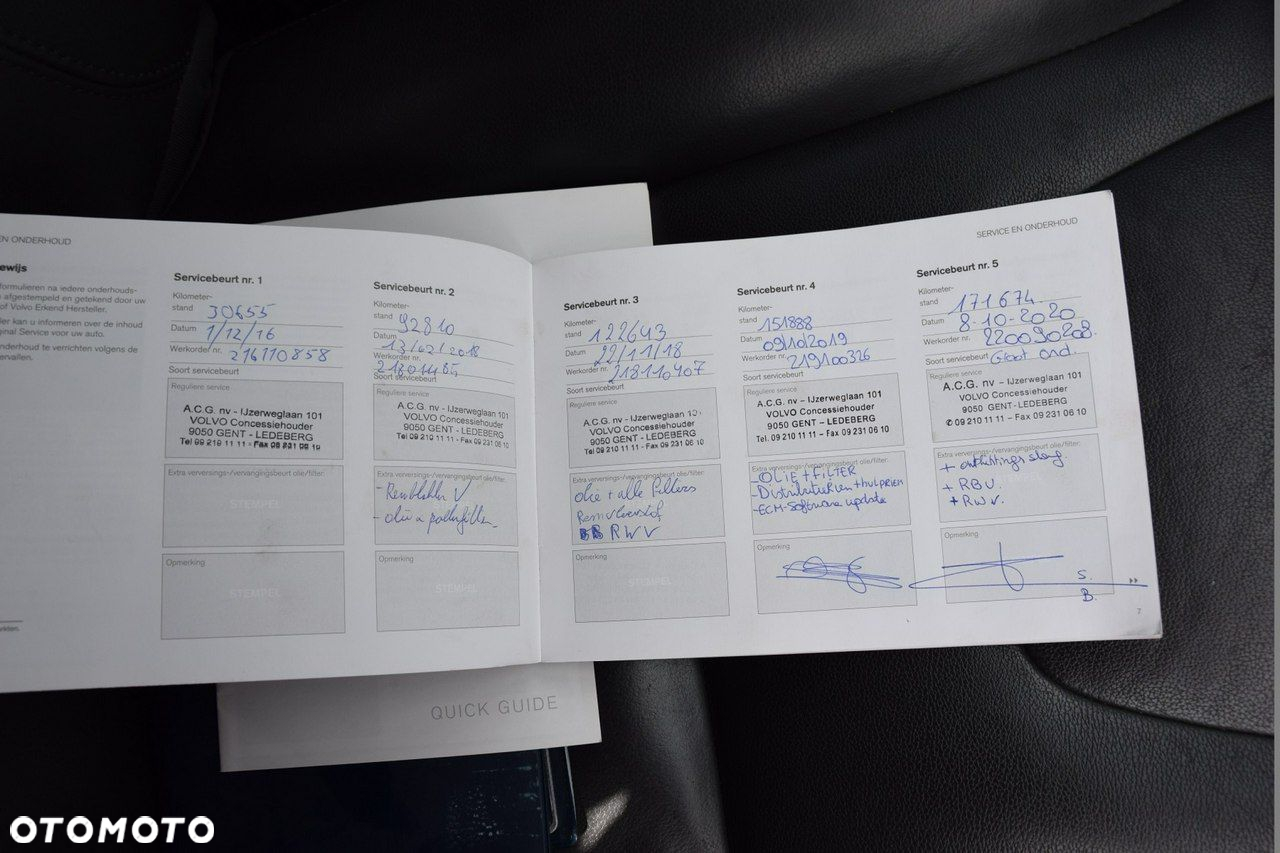 EN ONDERHOUD
ewijs
formulieren na iedere onderhouds-
afgestempeld en getekend door uw
of Volvo Erkend Hersteller.
ler kan u informeren over de inhoud
ginal Service voor uw auto.
nderhoud te verrichten volgens de
ervallen.
Servicebeurt nr. 1
Kilometer-
stand 30655
Datum 1/12/16
Werkorder nr. 216110858
Soort servicebeurt
Reguliere service
A.C.G. nv - IJzerweglaan 101
VOLVO Concessiehouder
9050 GENT - LEDEBERG
Tel 09 210 11 11 - Fax 09 231 06 10
Extra verversings-/vervangingsbeurt olie/filter:
STEMPEL
Opmerking
STEMPEL
Servicebeurt nr. 2
Kilometer-
stand 92810
Datum 13/02/2018
Werkorder nr.
Soort servicebeurt
Reguliere service
A.C.G. nv - IJzerweglaan 101
VOLVO Concessiehouder
9050 GENT - LEDEBERG
Tel 09 210 11 11 - Fax 09 231 06 10
Extra verversings-/vervangingsbeurt olie/filter:
- V
- olie
Opmerking
STEMPEL
Servicebeurt nr. 3
Kilometer-
stand 122643
Datum 22/11/18
Werkorder nr. 218110407
Soort servicebeurt
Reguliere service
A.C.G. nv - IJzerweglaan 101
VOLVO Concessiehouder
9050 GENT - LEDEBERG
Tel 09 210 11 11 - Fax 09 231 06 10
Extra verversings-/vervangingsbeurt olie/filter:
olie + alle filters
Remvloeistof
RWV
Opmerking
STEMPEL
SERVICE EN ONDERHOUD
Servicebeurt nr. 4
Kilometer-
stand 151888
Datum 09/10/2019
Werkorder nr. 219100326
Soort servicebeurt
Reguliere service
A.C.G. nv - IJzerweglaan 101
VOLVO Concessiehouder
9050 GENT - LEDEBERG
Tel. 09 210 11 11 - Fax 09 231 06 10
Extra verversings-/vervangingsbeurt olie/filter:
- OLIE + FILTER
- Distributieriem + hulpriem
- ECM-Software update
Opmerking
Servicebeurt nr. 5
Kilometer-
stand 171674
Datum 8-10-2020
Werkorder nr. 220090208.
Soort servicebeurt Groot ond.
Reguliere service
A.C.G. nv - IJzerweglaan 101
VOLVO Concessiehouder
9050 GENT - LEDEBERG
✆ 09 210 11 11 - Fax 09 231 06 10
Extra verversings-/vervangingsbeurt olie/filter:
+ ontluchtings slang.
+ RBV.
+ RWV.
Opmerking
S.
B.
7
QUICK GUIDE
OTOMOTO